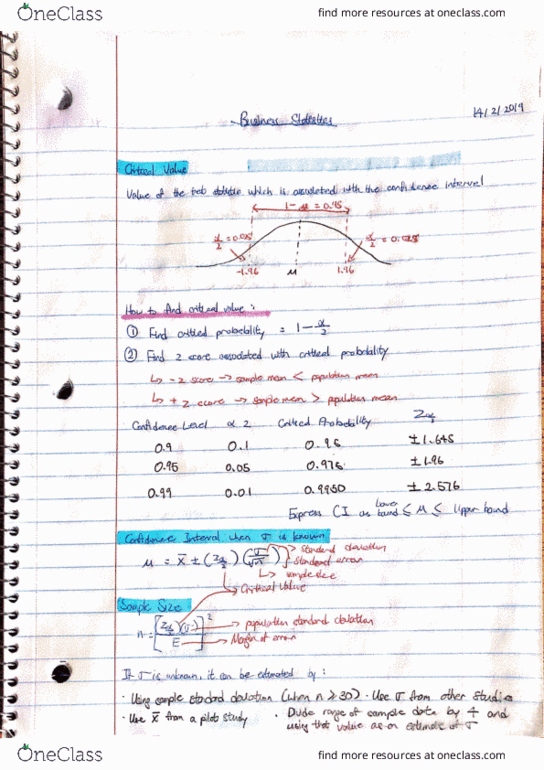 OneClass
find more resources at oneclass.com
14/2/2019
Business Statistics
Critical Value
Value of the test statistic which is associated with the confidence interval
1-α = 0.95
α/2 = 0.025
α/2 = 0.025
-1.96 μ 1.96
How to find critical value:
① Find critical probability = 1-α/2
② Find z score associated with critical probability
↳ -z score → sample mean < population mean
↳ +z score → sample mean > population mean
Confidence Level α 2 Critical Probability Zα/2
0.9 0.1 0.95 ±1.645
0.95 0.05 0.975 ±1.96
0.99 0.01 0.9950 ±2.576
Express CI as lower band ≤ μ ≤ Upper band
Confidence Interval when σ is known
μ = x̄ ± (Zα/2)(σ/√n)
standard deviation
standard error
↳ sample size
Critical Value
Sample Size
n = [(Zα/2)(σ)/E]²
population standard deviation
Margin of error
If σ is unknown, it can be estimated by:
· Using sample standard deviation (when n ≥ 30) · Use σ from other studies
· Use x̄ from a pilot study · Divide range of sample data by 4 and
using that value as an estimate of σ
OneClass
find more resources at oneclass.com